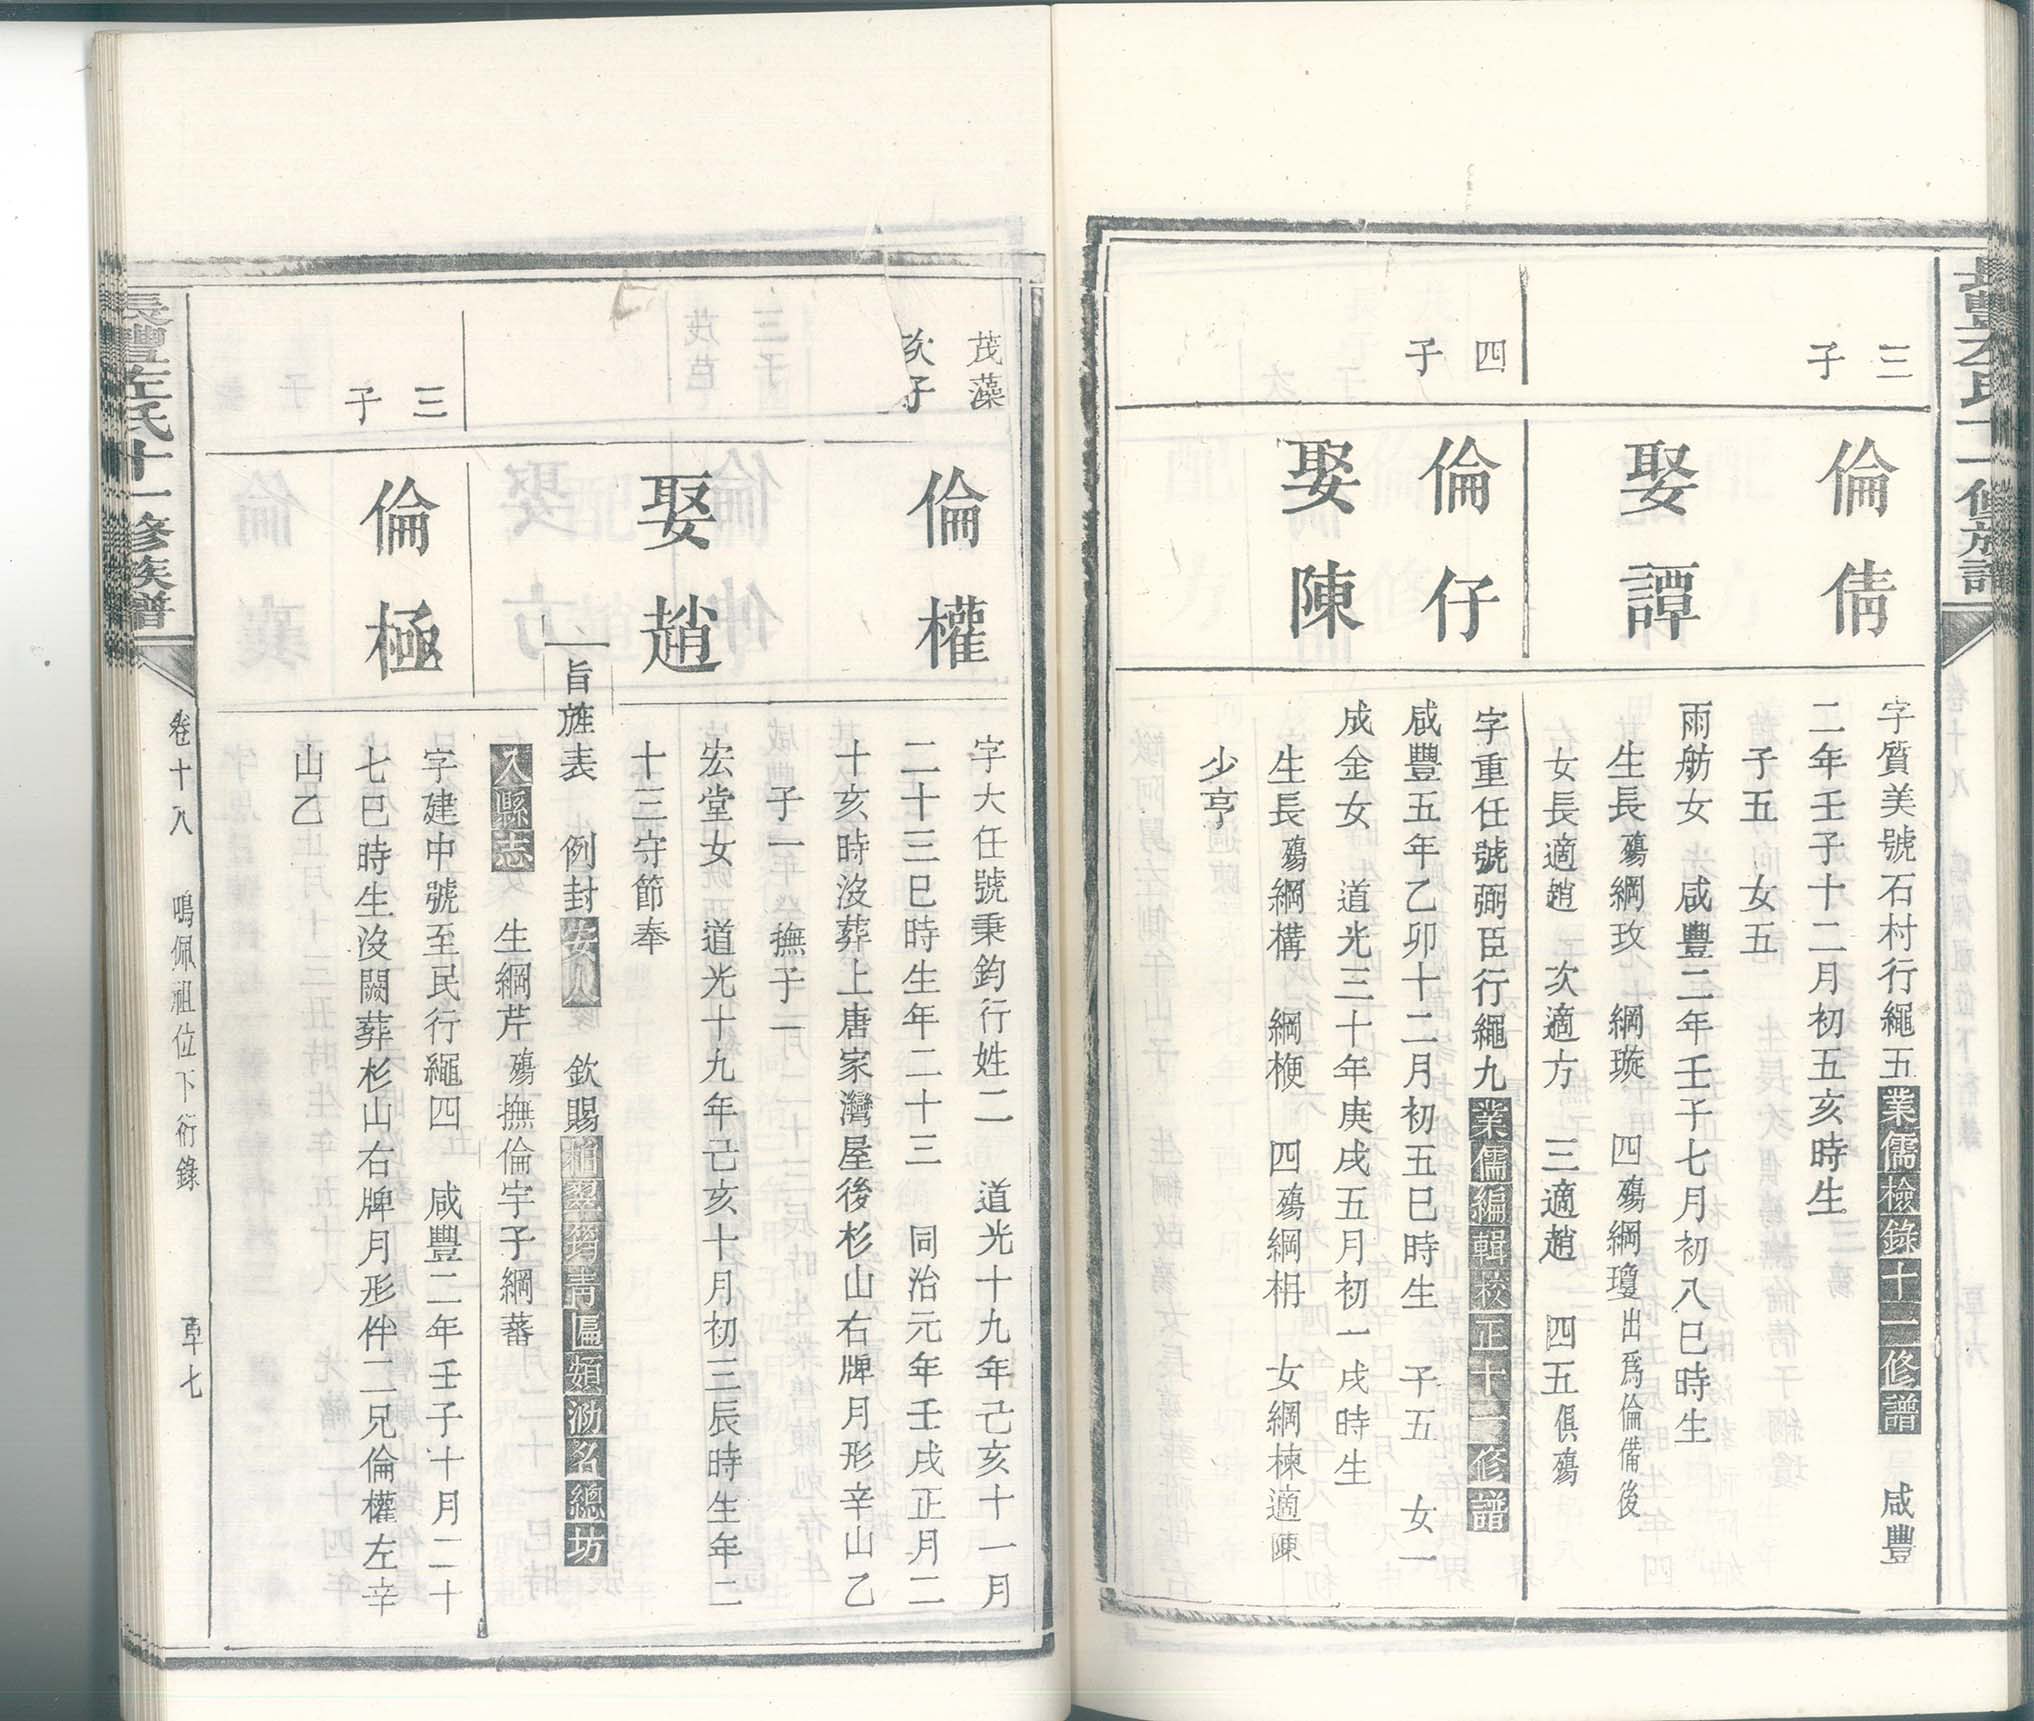 長豐左氏十一修族譜
三子
倫倩
字質美號石村行繩五業儒檢錄十一修譜 咸豐
二年壬子十二月初五亥時生
子五 女五
娶譚
雨舫女 咸豐二年壬子七月初八巳時生
生長殤綱玫 綱璇 四殤綱瓊出爲倫備後
女長適趙 次適方 三適趙 四五俱殤
四子
倫仔
字重任號弼臣行繩九業儒編輯校正十一修譜
咸豐五年乙卯十二月初五巳時生 子五 女一
娶陳
成金女 道光三十年庚戌五月初一戌時生
生長殤綱構 綱梗 四殤綱枬 女綱棟適陳
少亨
茂藻次子
倫權
字大任號秉鈞行姓二 道光十九年己亥十一月
二十三巳時生年二十三 同治元年壬戌正月二
十亥時沒葬上唐家灣屋後杉山右牌月形辛山乙
子一 撫子一
娶趙
宏堂女 道光十九年己亥十月初三辰時生年二
十三守節奉
旨旌表 例封安人 欽賜 靑 名總坊
入縣志 生綱芹殤撫倫宇子綱蕃
三子
倫極
字建中號至民行繩四 咸豐二年壬子十月二十
七巳時生沒闕葬杉山右牌月形伴二兄倫權左辛
山乙
長豐左氏十一修族譜
卷十八 鳴佩祖位下衍錄 草七